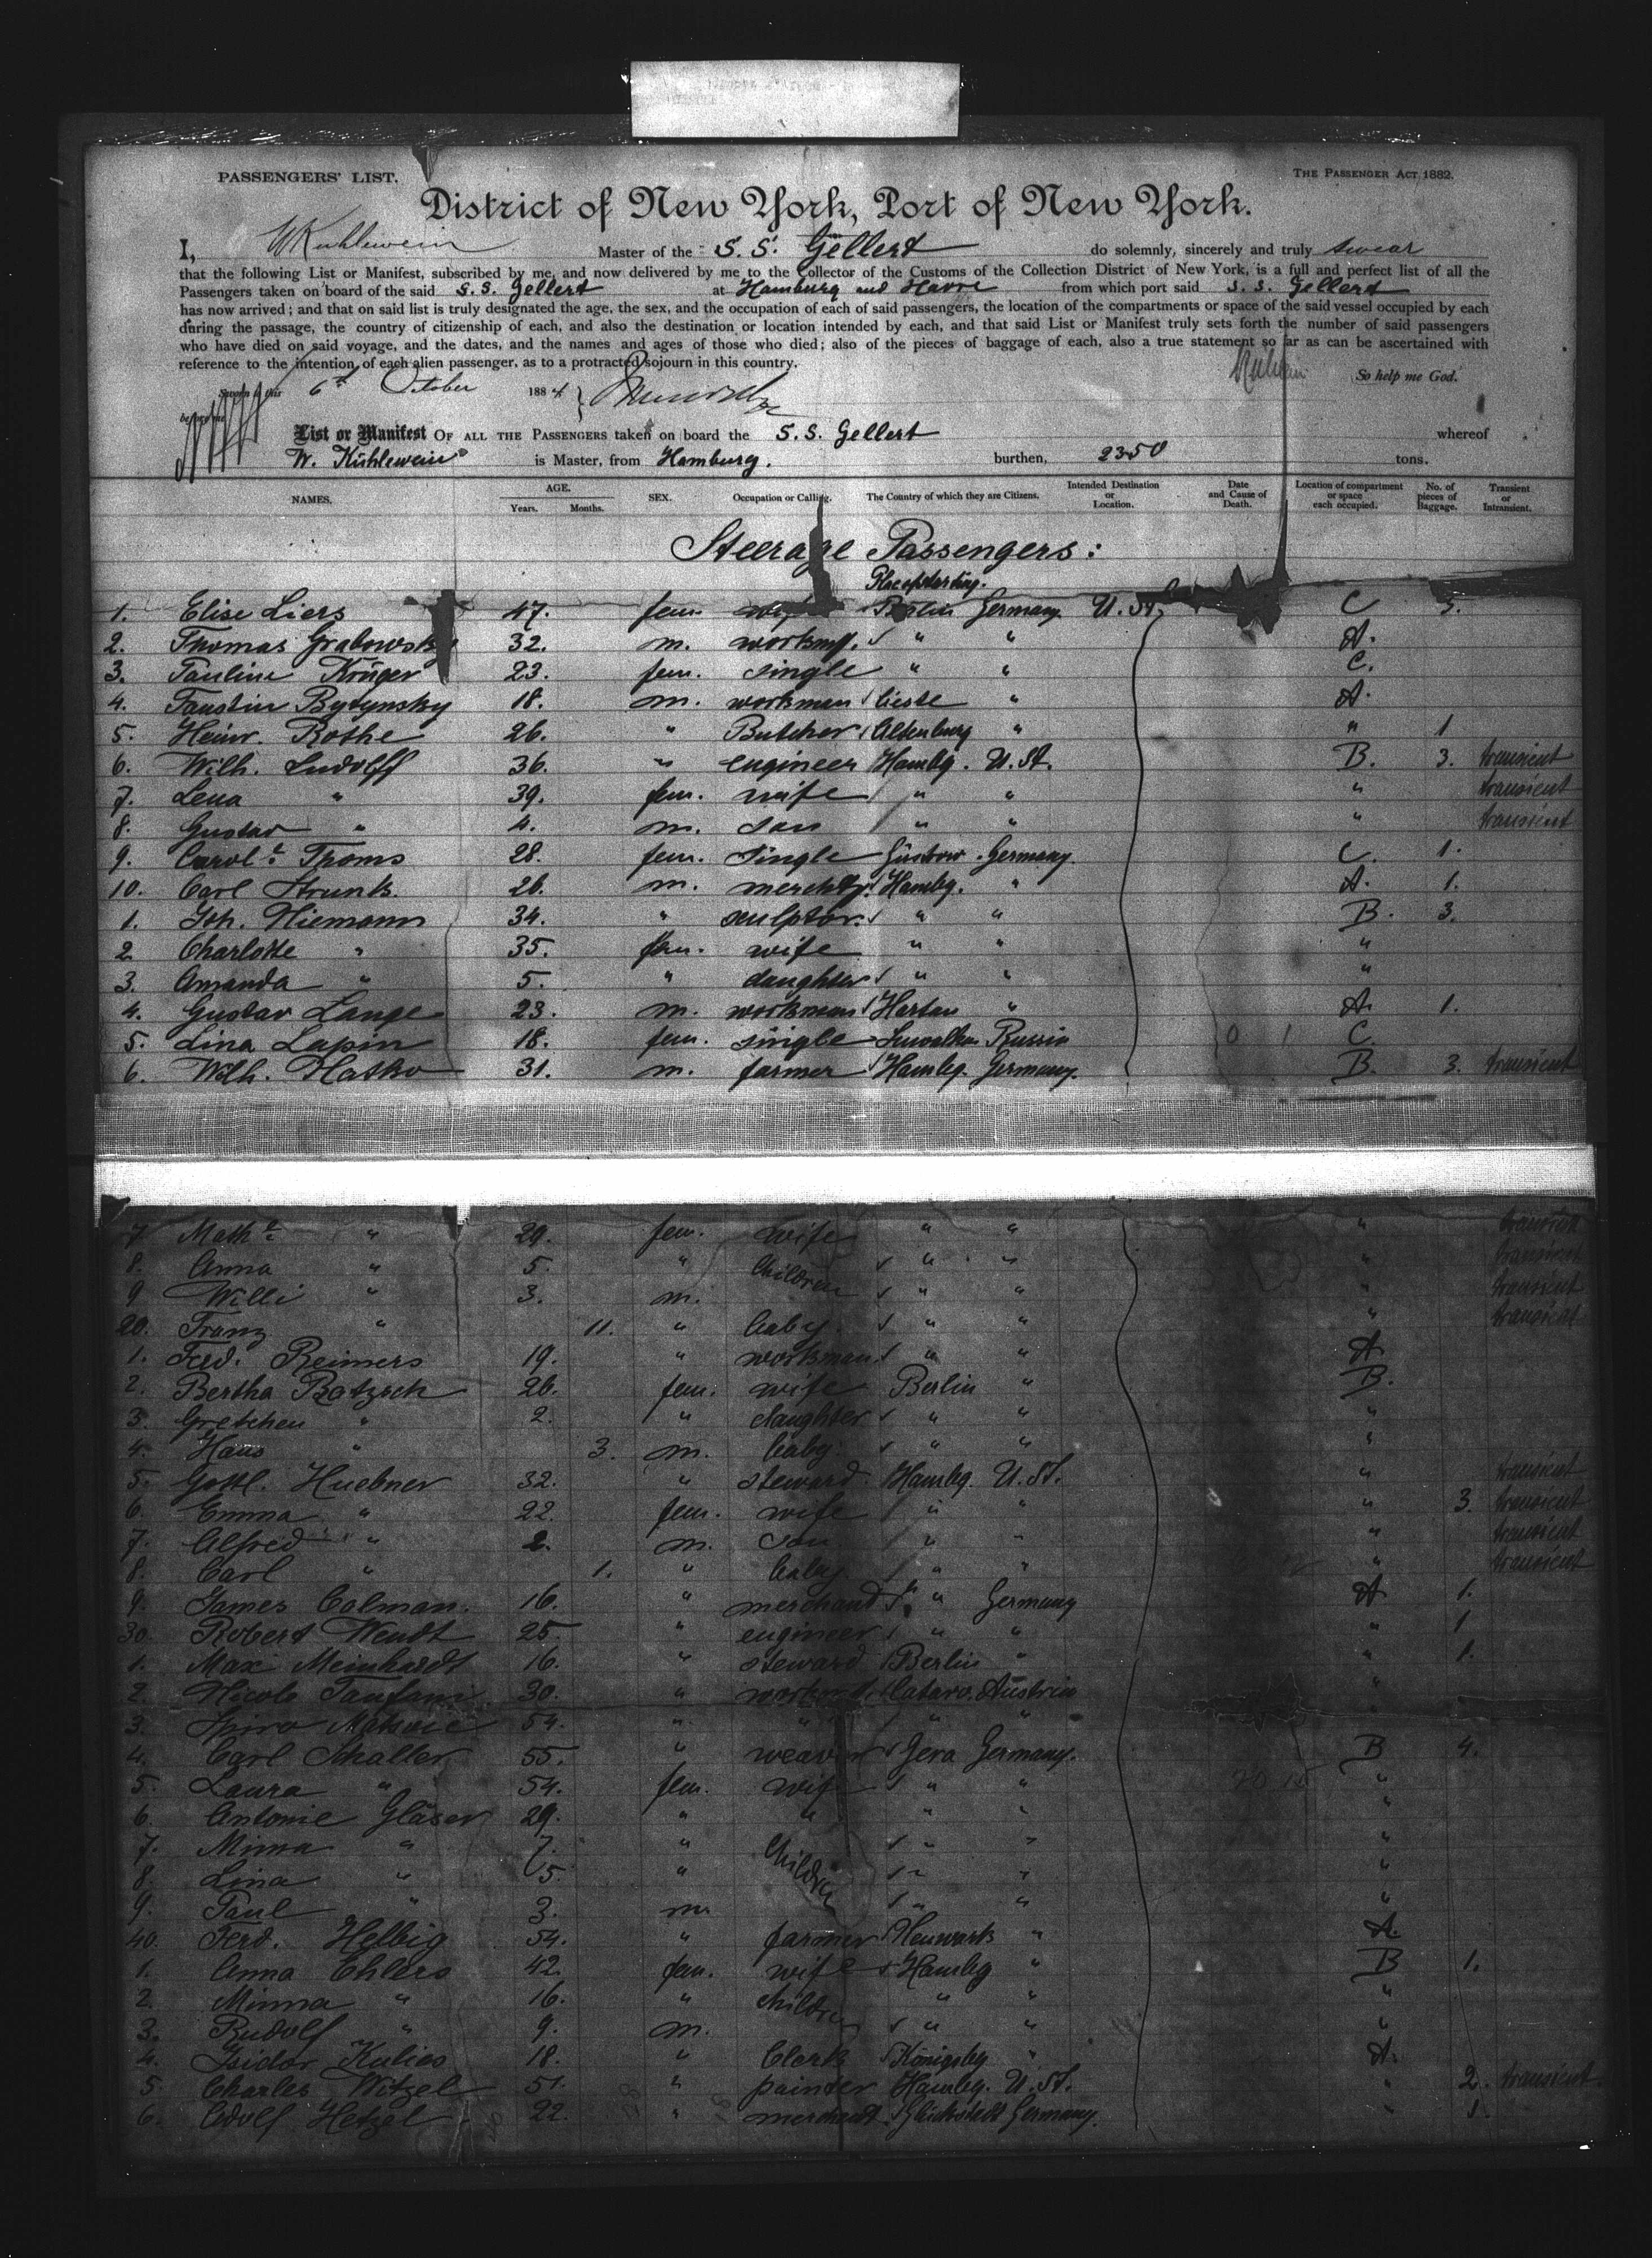 PASSENGERS' LIST.
THE PASSENGER ACT 1882.
District of New York, Port of New York.
I, W Kuhlewein Master of the S. S. Gellert do solemnly, sincerely and truly swear
that the following List or Manifest, subscribed by me, and now delivered by me to the Collector of the Customs of the Collection District of New York, is a full and perfect list of all the
Passengers taken on board of the said S. S. Gellert at Hamburg and Havre from which port said S. S. Gellert
has now arrived; and that on said list is truly designated the age, the sex, and the occupation of each of said passengers, the location of the compartments or space of the said vessel occupied by each
during the passage, the country of citizenship of each, and also the destination or location intended by each, and that said List or Manifest truly sets forth the number of said passengers
who have died on said voyage, and the dates, and the names and ages of those who died; also of the pieces of baggage of each, also a true statement so far as can be ascertained with
reference to the intention of each alien passenger, as to a protracted sojourn in this country.
So help me God.
Sworn to this 6th October 1884
before me
List or Manifest OF ALL THE PASSENGERS taken on board the S. S. Gellert whereof
W. Kühlewein is Master, from Hamburg. burthen, 2350 tons.
NAMES. AGE. Years. Months. SEX. Occupation or Calling. The Country of which they are Citizens. Intended Destination or Location. Date and Cause of Death. Location of compartment or space each occupied. No. of pieces of Baggage. Transient or Intransient.
Steerage Passengers:
Place of starting.
1. Elise Liers 47. fem. wife Berlin Germany U. St. C 3.
2. Thomas Grabowsky 32. m. workm. " " A.
3. Pauline Krüger 23. fem. single " " C.
4. Faustin Bytynsky 18. m. workman " A.
5. Heinr. Rothe 26. " Butcher Altenburg " " 1
6. Wilh. Ludolff 36. " engineer Hambg. U. St. B. 3. transient
7. Lena " 39. fem. wife " " " transient
8. Gustav " 4. m. son " " " transient
9. Carole Thoms 28. fem. single Güstrow Germany C. 1.
10. Carl Strunk 26. m. Hambg. " A. 1.
1. Joh. Niemann 34. " sculptor " " B. 3.
2 Charlotte " 35. fem. wife " " "
3. Amanda " 5. " daughter " " "
4. Gustav Lange 23. m. workman Hartau " A. 1.
5. Lina Lapin 18. fem. single Suwalken Russia C.
6. Wilh. Hatko 31. m. farmer Hambg. Germany. B. 3. transient
7 Mathe " 29. fem. wife " " " transient
8. Anna " 5. " Children " " " transient
9 Willi " 3. m. " " " transient
20. Franz " 11. " baby " " " transient
1. Ferd. Reimers 19. " workman " " A
2. Bertha Rotzsch 26. fem. wife Berlin " B.
3. Gretchen " 2. " daughter " " "
4. Hans " 3. m. baby. " " "
5. Gottl. Huebner 32. " steward Hambg. U. St. " transient
6. Emma " 22. fem. wife " " " 3. transient
7. Alfred " 2. m. son " " " transient
8. Carl " 1. " baby " " " transient
9. James Colman. 16. " merchand " Germany A 1.
30 Robert Wendt 25 " engineer " " " 1
1. Max Meinhardt 16. " steward Berlin " " 1.
2. Nicolo 30. " Cataro. Austria "
3. Spiro 54. " " " " "
4. Carl Schaller 55. " weaver Gera Germany. B 4.
5. Laura " 54. fem. wife " " "
6. Antonie Gläser 29. " " " " "
7. Minna " 7. " Children " " "
8. Lina " 5. " " " "
9. Paul " 3. m. " " "
40. Ferd. Helbig 54. " farmer " A.
1. Anna Ehlers 42. fem. wife Hambg " B 1.
2. Minna " 16. " children " " "
3. Rudolf " 9. m. " " "
4. Isidor 18. " Clerk Königsbg " A.
5. Charles Witzel 51. " painter Hambg. U. St. " 2. transient
6. Adolf Hetzel 22. " merchant Glückstadt Germany. " 1.